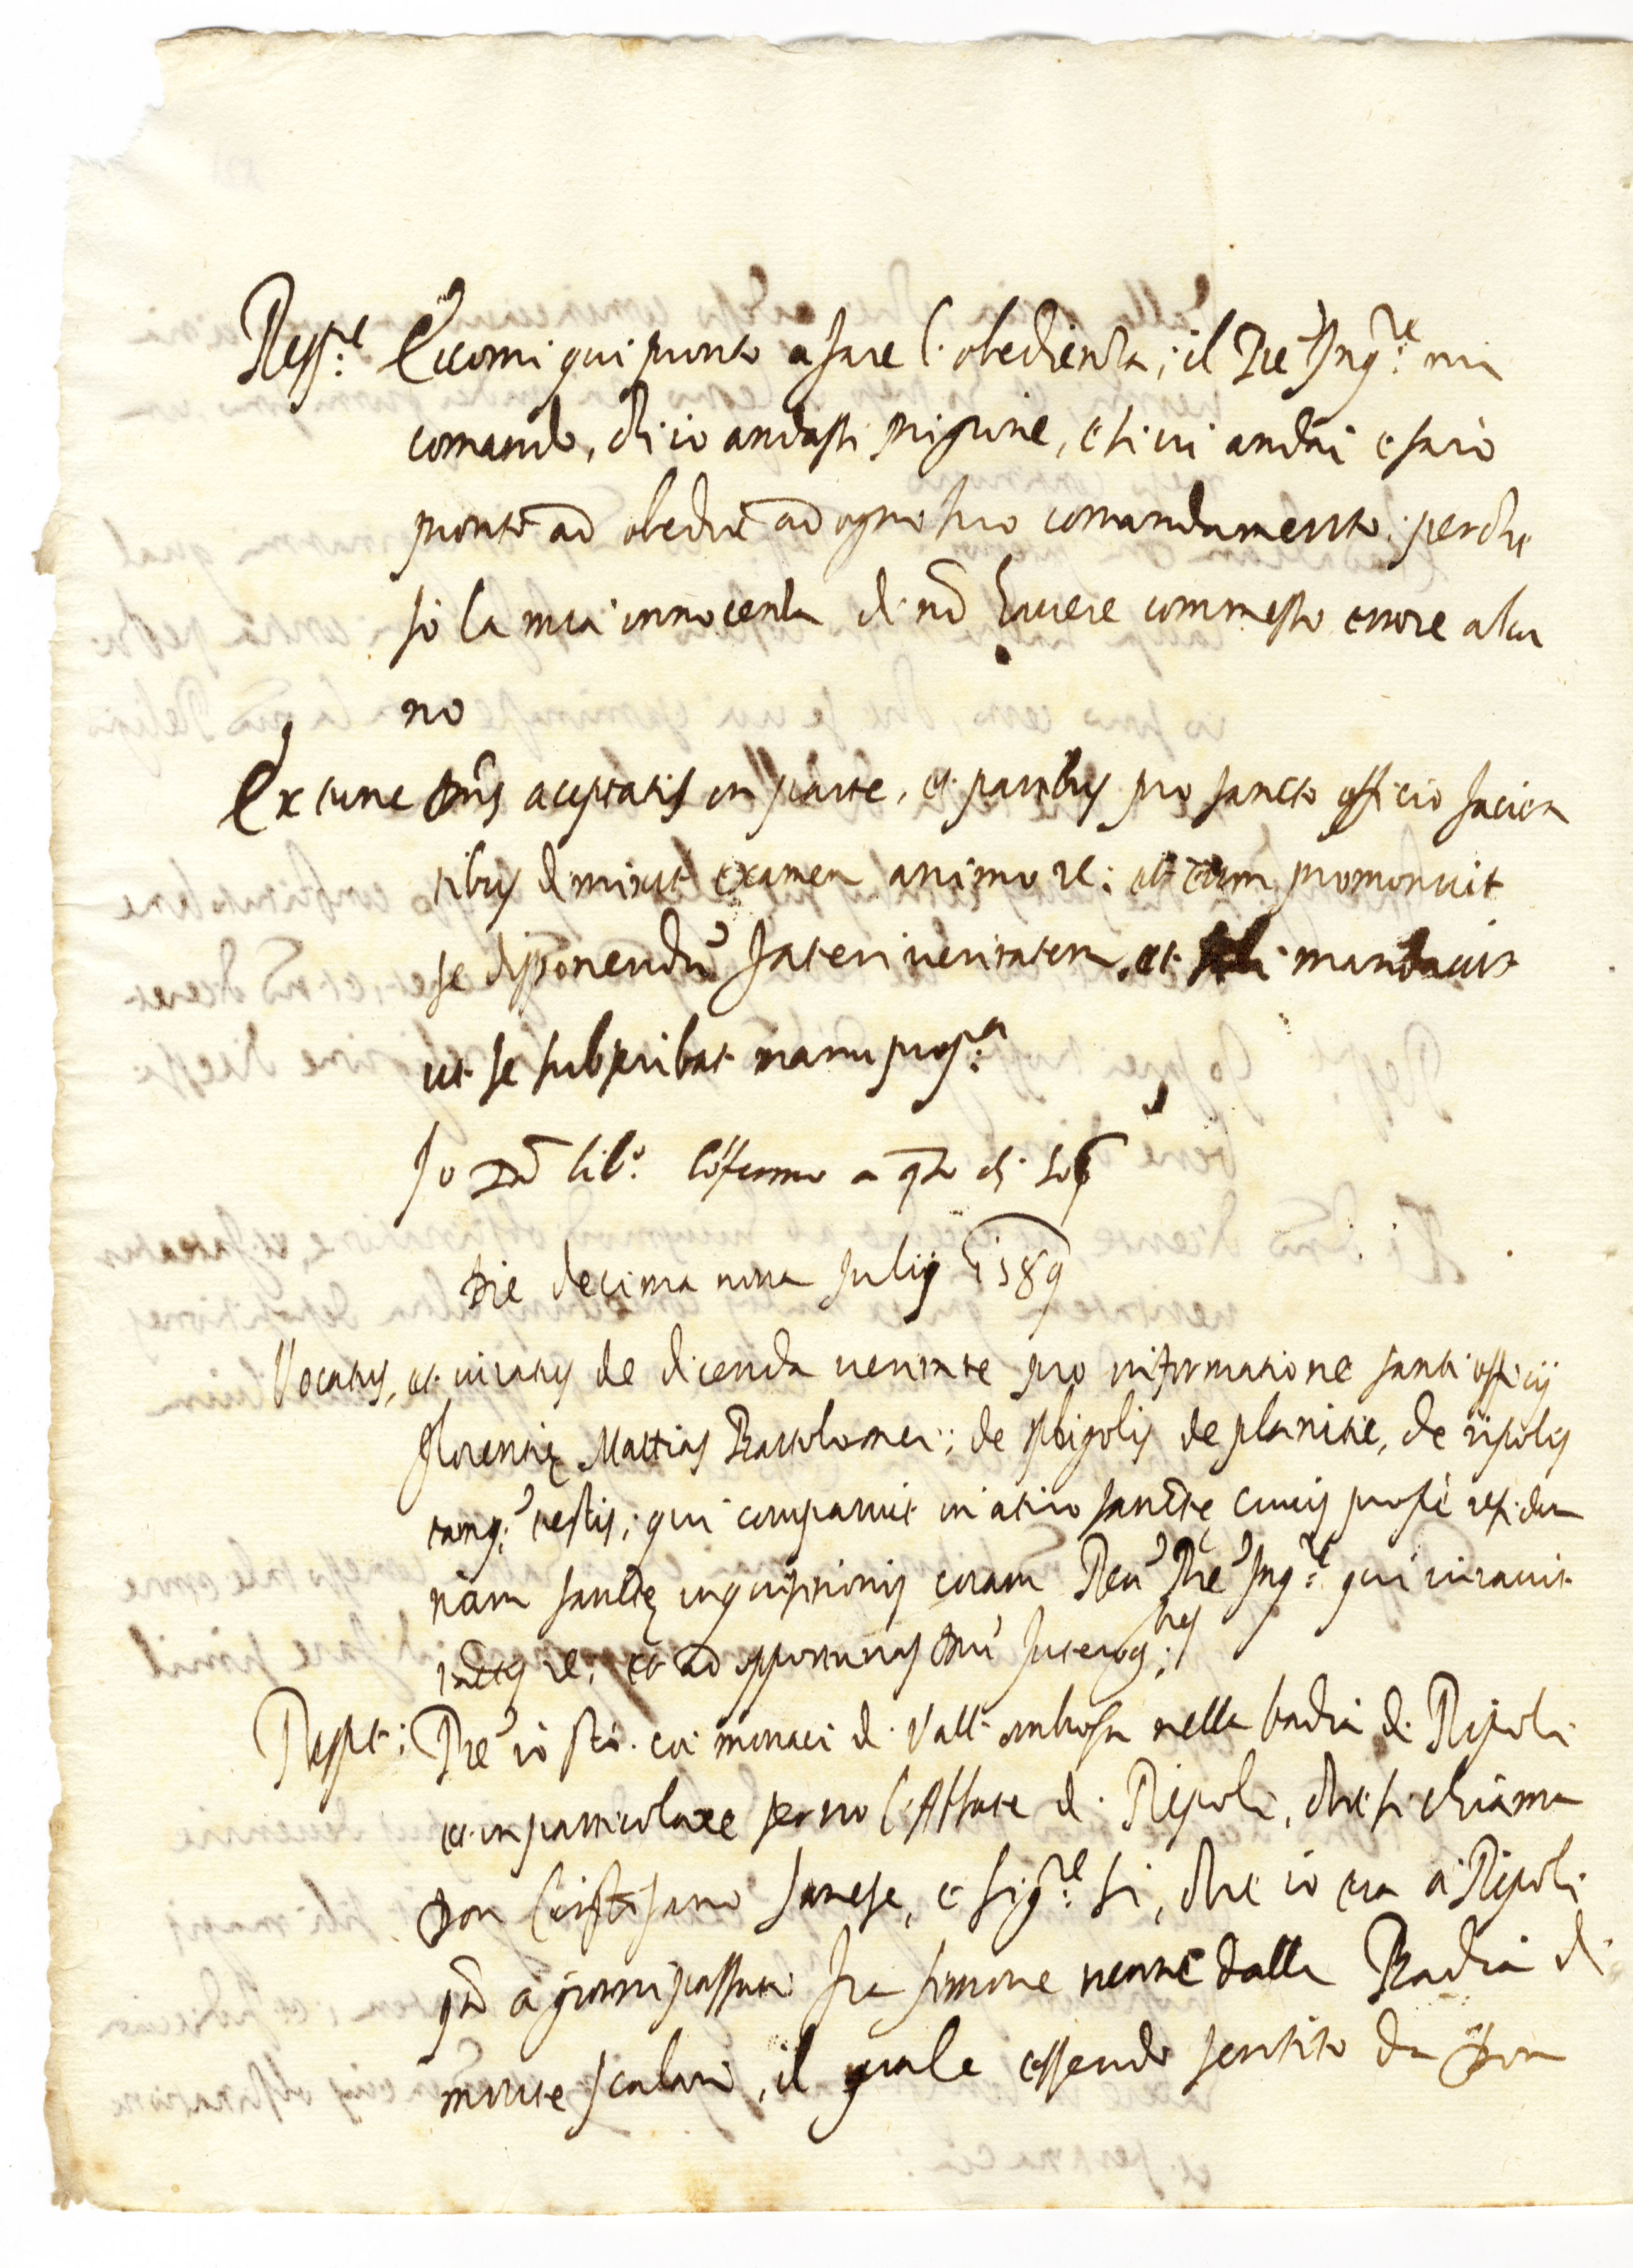 Resp.re Eccomi qui pronto a fare l'obedienza; il Pre Inq.re mi
comandò, ch'io andassi prigione, e li ui andai e sarò
pronto ad obedire ad ogni suo comandamento: perche
so la mia innocenza di nō hauere commesso errore alcu
no
Ex tunc Dn̄s acceptatis in parte, et partibus pro sancto officio facien
tibus dimisit examen animo re: et eum promonuit
se disponendū fateri ueritatem, et mandauit
ut se subscribat manu prop.a
Io Dō Lib.o cōfermo a qto di sop
Die decima nona Julij 1589
Vocatus, et iuratus de dicenda ueritate pro informatione santi officij
florentię Mattias Bartolomei: de sbigolis de planitie, de ripolis
tamq; testis; qui comparuit in atrio sanctę Crucis prope residen
tiam sanctę inquisitionis coram Reu Pre Inq.re qui iurauit
tactis re; et ad opportunas Dn̄i Interog.nes
Respt: Pre io stò coi monaci di Vall'ombrosa nella badia di Ripoli
et in particolare seruo l'Abbate di Ripoli, che si chiama
Don Cristofano sanese, e sig.re si, che io era a Ripoli
qn̄ a giorni passati fra simone uenne dalla Badia di
monte scalari, il quale essendo sentito da Don